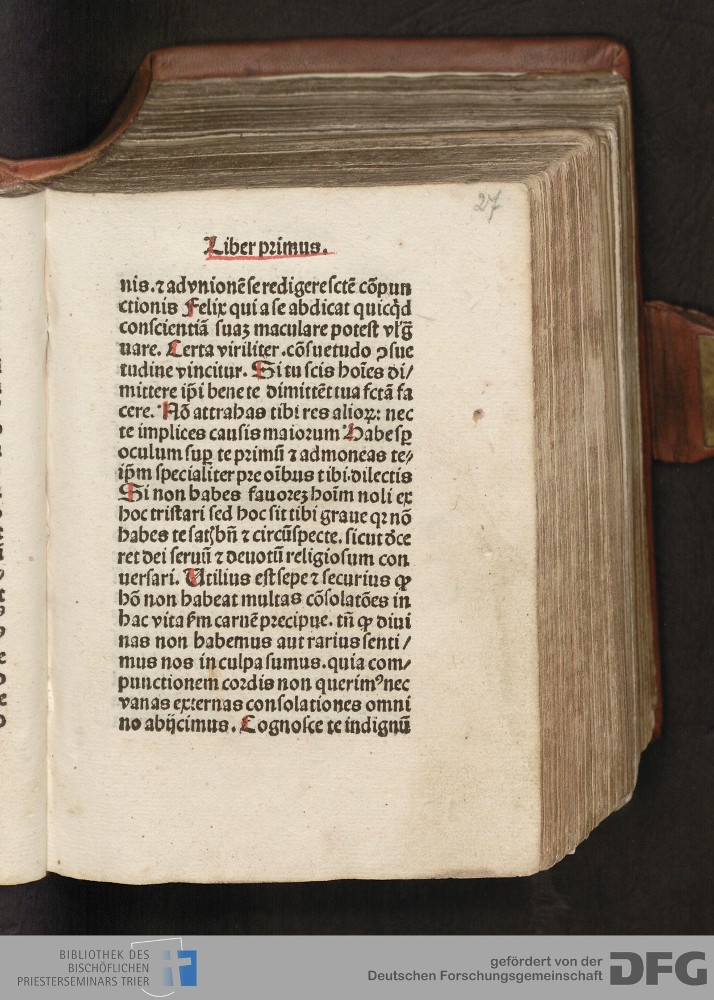 27
Liber primus.
nis. ⁊ ad vnionē se redigere sctē cōpun
ctionis Felix qui a se abdicat quicq̇d
conscientiā suaꝫ maculare potest vl' ḡ
uare. Certa viriliter. cōsuetudo ꝯsue
tudine vincitur. Si tu scis hoīes di/
mittere ip̄i bene te dimittēt tua fctā fa
cere. Nō attrahas tibi res alioꝝ: nec
te implices causis maiorum Habe sꝑ
oculum suꝑ te primū ⁊ admoneas te/
ip̄m specialiter pre oībus tibi. dilectis
Si non habes fauoreꝫ hoīm noli ex
hoc tristari sed hoc sit tibi graue qꝛ nō
habes te satꝭ bn̄ ⁊ circūspecte. sicut dece
ret dei seruū ⁊ deuotū religiosum con
uersari. Utilius est sepe ⁊ securius ꝙ
hō non habeat multas cōsolatōes in
hac vita km̄ carnē precipue. tn̄ ꝙ diui
nas non habemus aut rarius senti/
mus nos in culpa sumus. quia com/
punctionem cordis non querimꝰ nec
vanas externas consolationes omni
no abijcimus. Cognosce te indignū
BIBLIOTHEK DES
BISCHÖFLICHEN
PRIESTERSEMINARS TRIER
gefördert von der
Deutschen Forschungsgemeinschaft
DFG